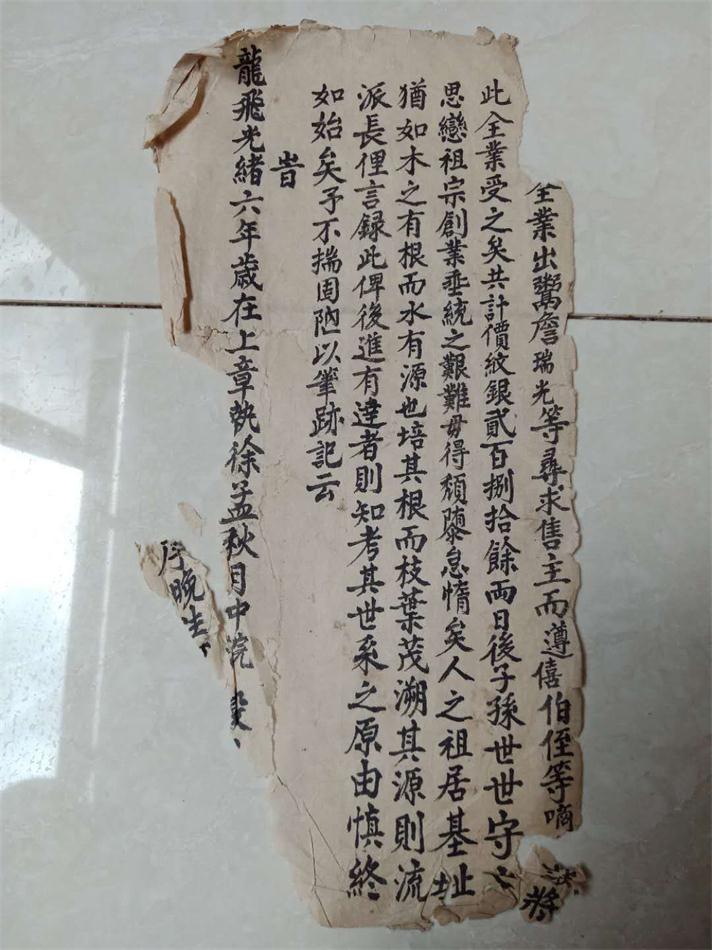 全業出鬻詹瑞光等尋求售主而遵僖伯侄等嘀
將
此全業受之矣共計價紋銀貳百捌拾餘兩日後子孫世世守之
思戀祖宗創業垂統之艱難毋得頹隳怠惰矣人之祖居基址
猶如木之有根而水有源也培其根而枝葉茂溯其源則流
派長俚言録此俾後進有達者則知考其世系之原由慎終
如始矣予不揣固陋以筆跡記云
旹
龍飛光緒六年歲在上章執徐孟秋月中浣
晚生